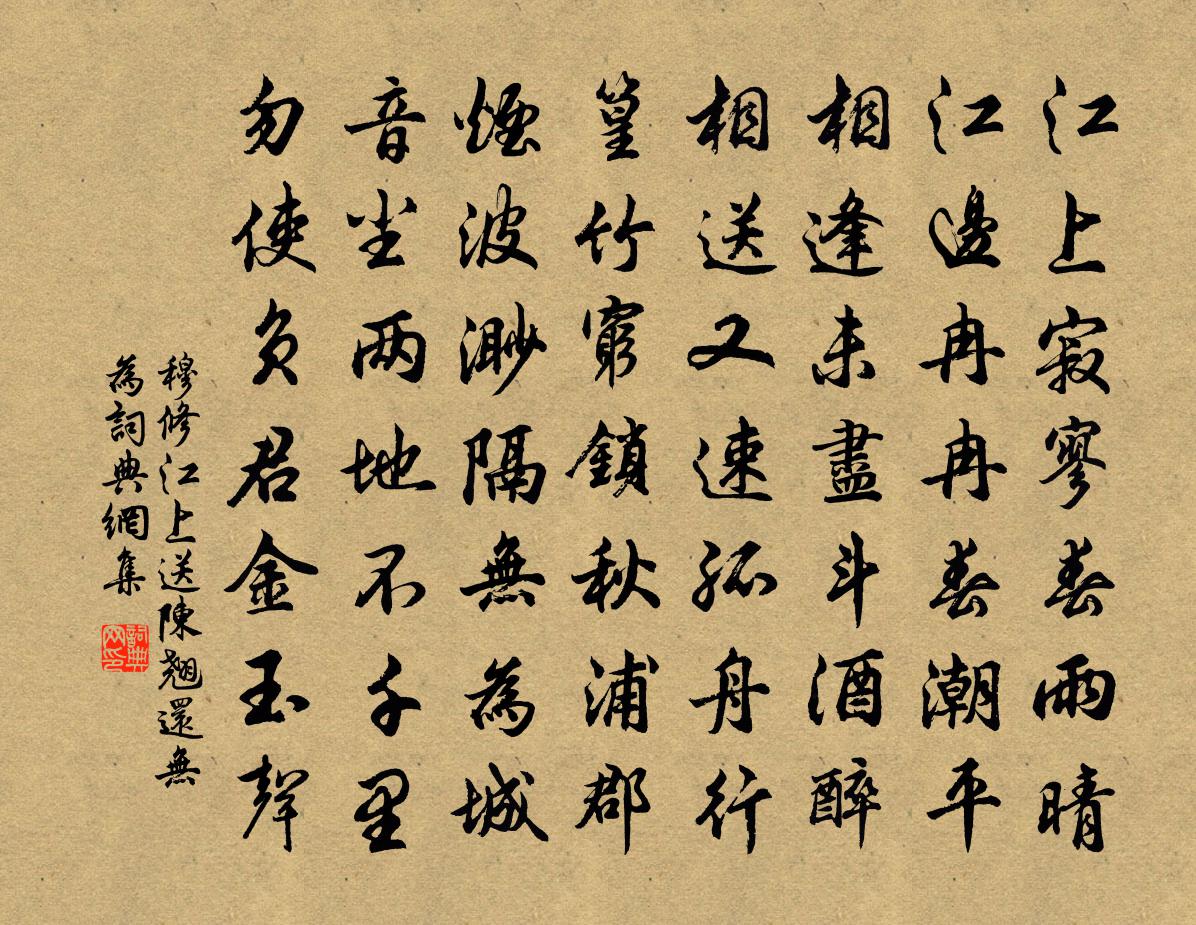 江上寂寥春雨晴
江邊冉冉春潮平
相逢未盡斗酒醉
相送又速孤舟行
篁竹窮鎖秋浦郡
煙波渺隔無為城
音尘兩地不千里
勿使負君金玉聲
穆修江上送陳翹還無
為詞典網集
詞典網印